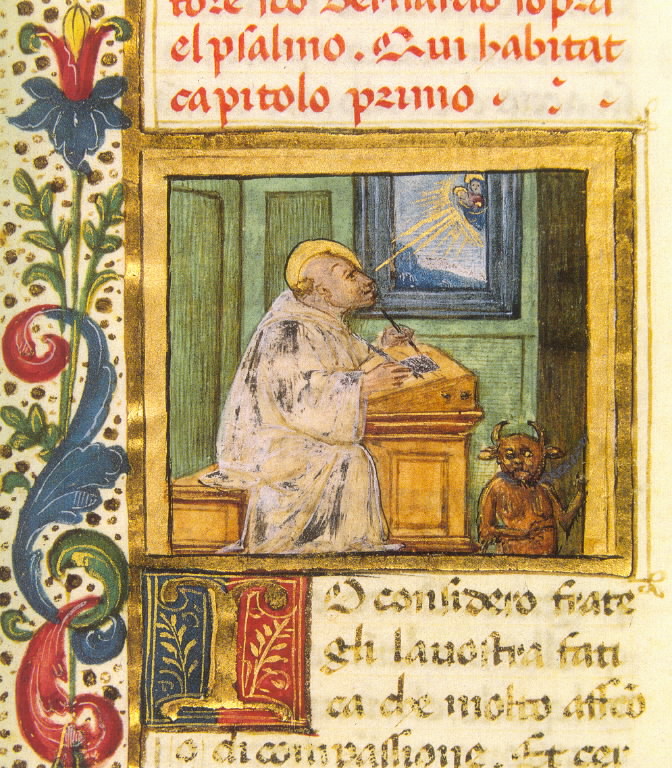 tore sco Bernardo sopra
el psalmo. Qui habitat
capitolo primo
IO considero frate
gli la vostra fati
ca che molto affet̃
o di compassione. Et cer